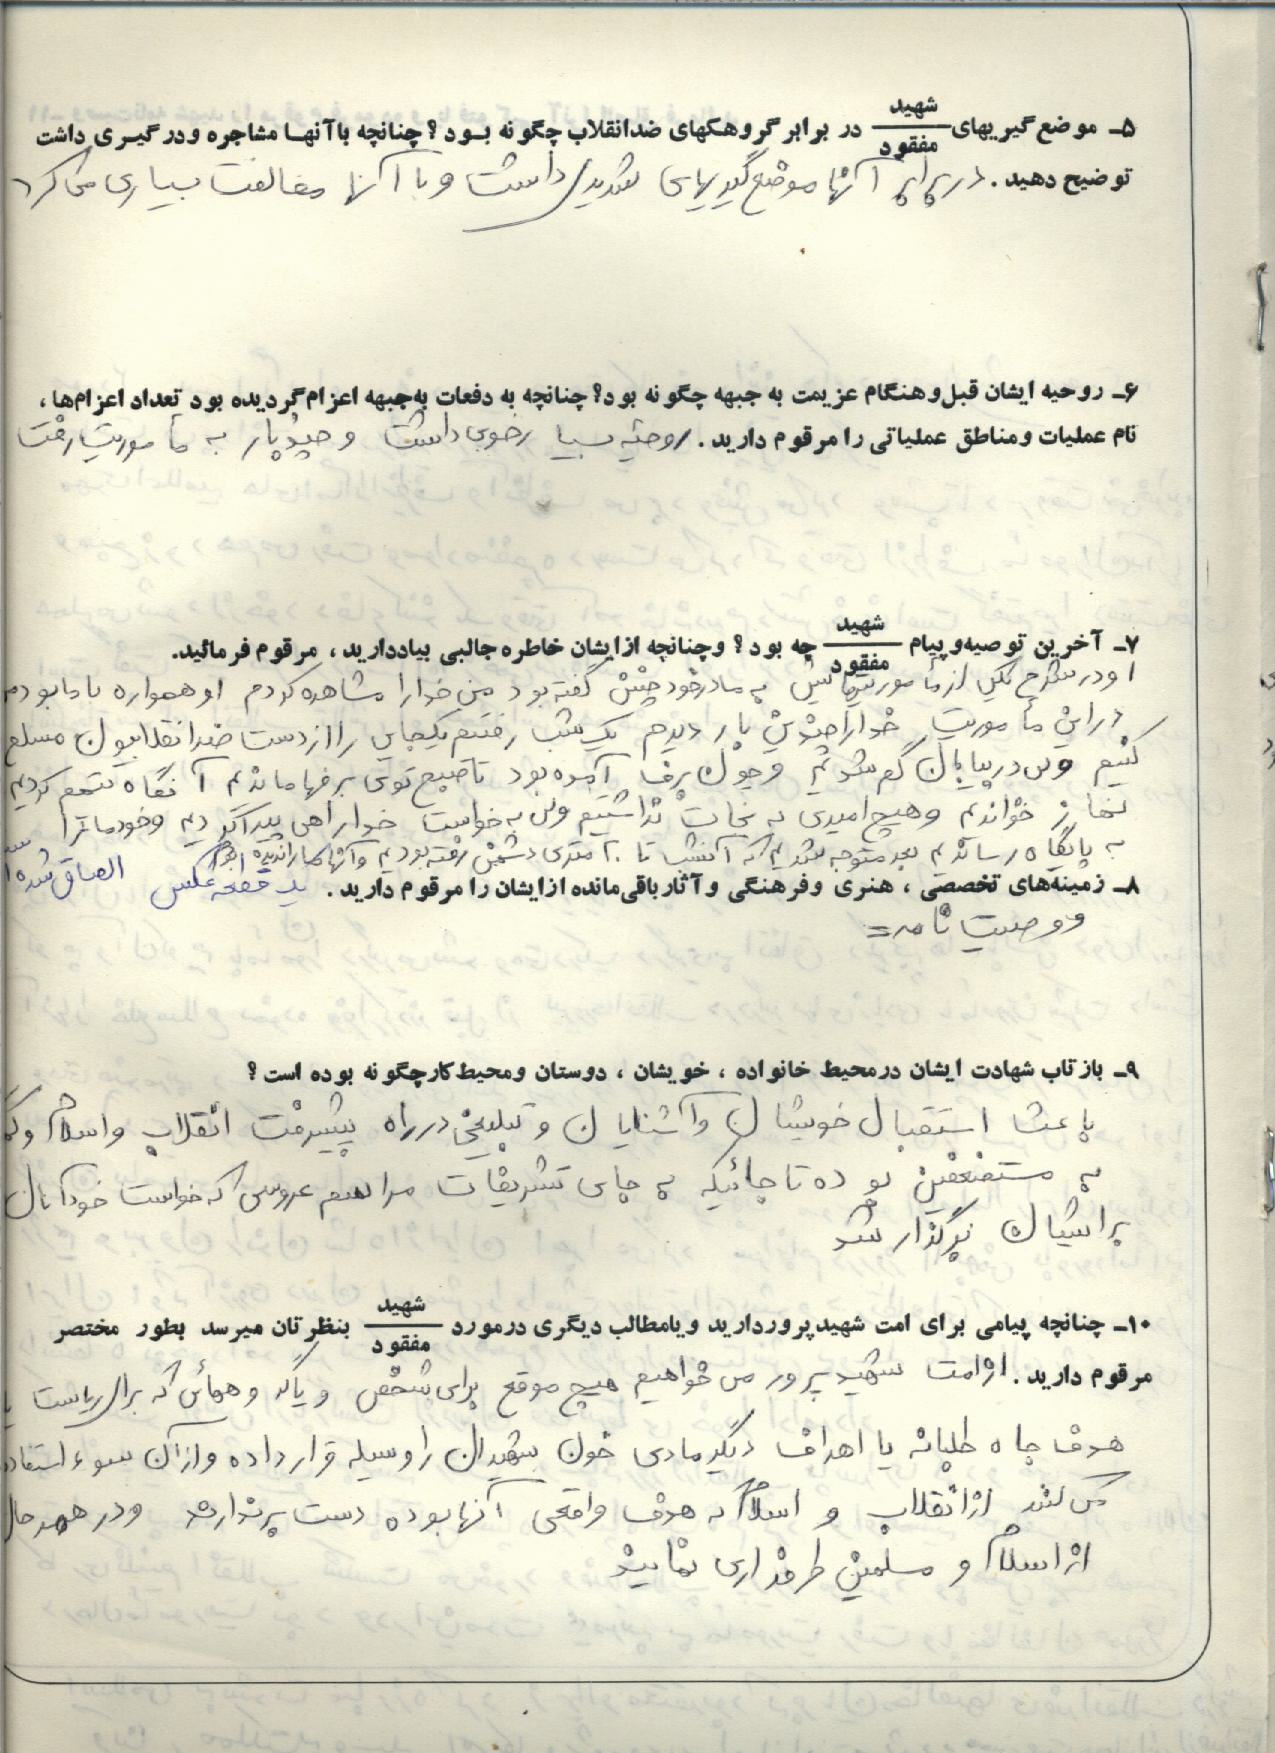 ۵ـ موضع گیریهای شهید/مفقود در برابر گروهکهای ضدانقلاب چگونه بود؟ چنانچه باآنها مشاجره ودرگیری داشت
توضیح دهید. در برابر آنها موضع گیریهای شدیدی داشت و با آنها مخالفت بسیاری می کرد
۶ـ روحیه ایشان قبل وهنگام عزیمت به جبهه چگونه بود؟ چنانچه به دفعات به جبهه اعزام گردیده بود تعداد اعزام‌ها،
نام عملیات ومناطق عملیاتی را مرقوم دارید. روحیه بسیار خوبی داشت و چند بار به مأموریت رفت
۷ـ آخرین توصیه وپیام شهید/مفقود چه بود؟ وچنانچه ازایشان خاطره جالبی بیاددارید، مرقوم فرمائید.
او در شرح یکی از مأموریتهایش به مادر خود چنین گفته بود من خدا را مشاهده کردم او همواره با ما بود
در این مأموریت خدا را چندین بار دیدم یک شب رفتیم یکجایی را از دست ضد انقلابیون مسلح
کنیم ولی در بیابان گم شدیم و چون برف آمده بود تا صبح توی برفها ماندیم آنگاه تیمم کردیم
نماز خواندیم و هیچ امیدی به نجات نداشتیم ولی به خواست خدا راهی پیدا کردیم و خودمانرا
به پایگاه رساندیم بعد متوجه شدیم که آنشب تا ۲۰ متری دشمن رفته بودیم و آنها ما را ندیده بودند
۸ـ زمینه‌های تخصصی، هنری وفرهنگی وآثارباقی‌مانده ازایشان را مرقوم دارید. یک قطعه عکس الصاق شده
و وصیت نامه =
۹ـ بازتاب شهادت ایشان درمحیط خانواده، خویشان، دوستان ومحیط کارچگونه بوده است؟
باعث استقبال خویشان و آشنایان و تبلیغی در راه پیشرفت انقلاب و اسلام و
به مستضعفین بوده تا جائیکه به جای تشریفات مراسم عروسی که خواست خدا آنان
برایشان برگذار شد
۱۰ـ چنانچه پیامی برای امت شهیدپروردارید ویامطالب دیگری درمورد شهید/مفقود بنظرتان میرسد بطور مختصر
مرقوم دارید. از امت شهید پرور می خواهیم هیچ موقع برای شخص و یا که برای ریاست یا
هدف جاه طلبانه یا اهداف دیگر مادی خون شهیدان را وسیله قرار داده و از آن سوء استفاده
می کنند از انقلاب و اسلام که هدف واقعی آنها بوده دست برندارند و در همه حال
از اسلام و مسلمین طرفداری نمایند